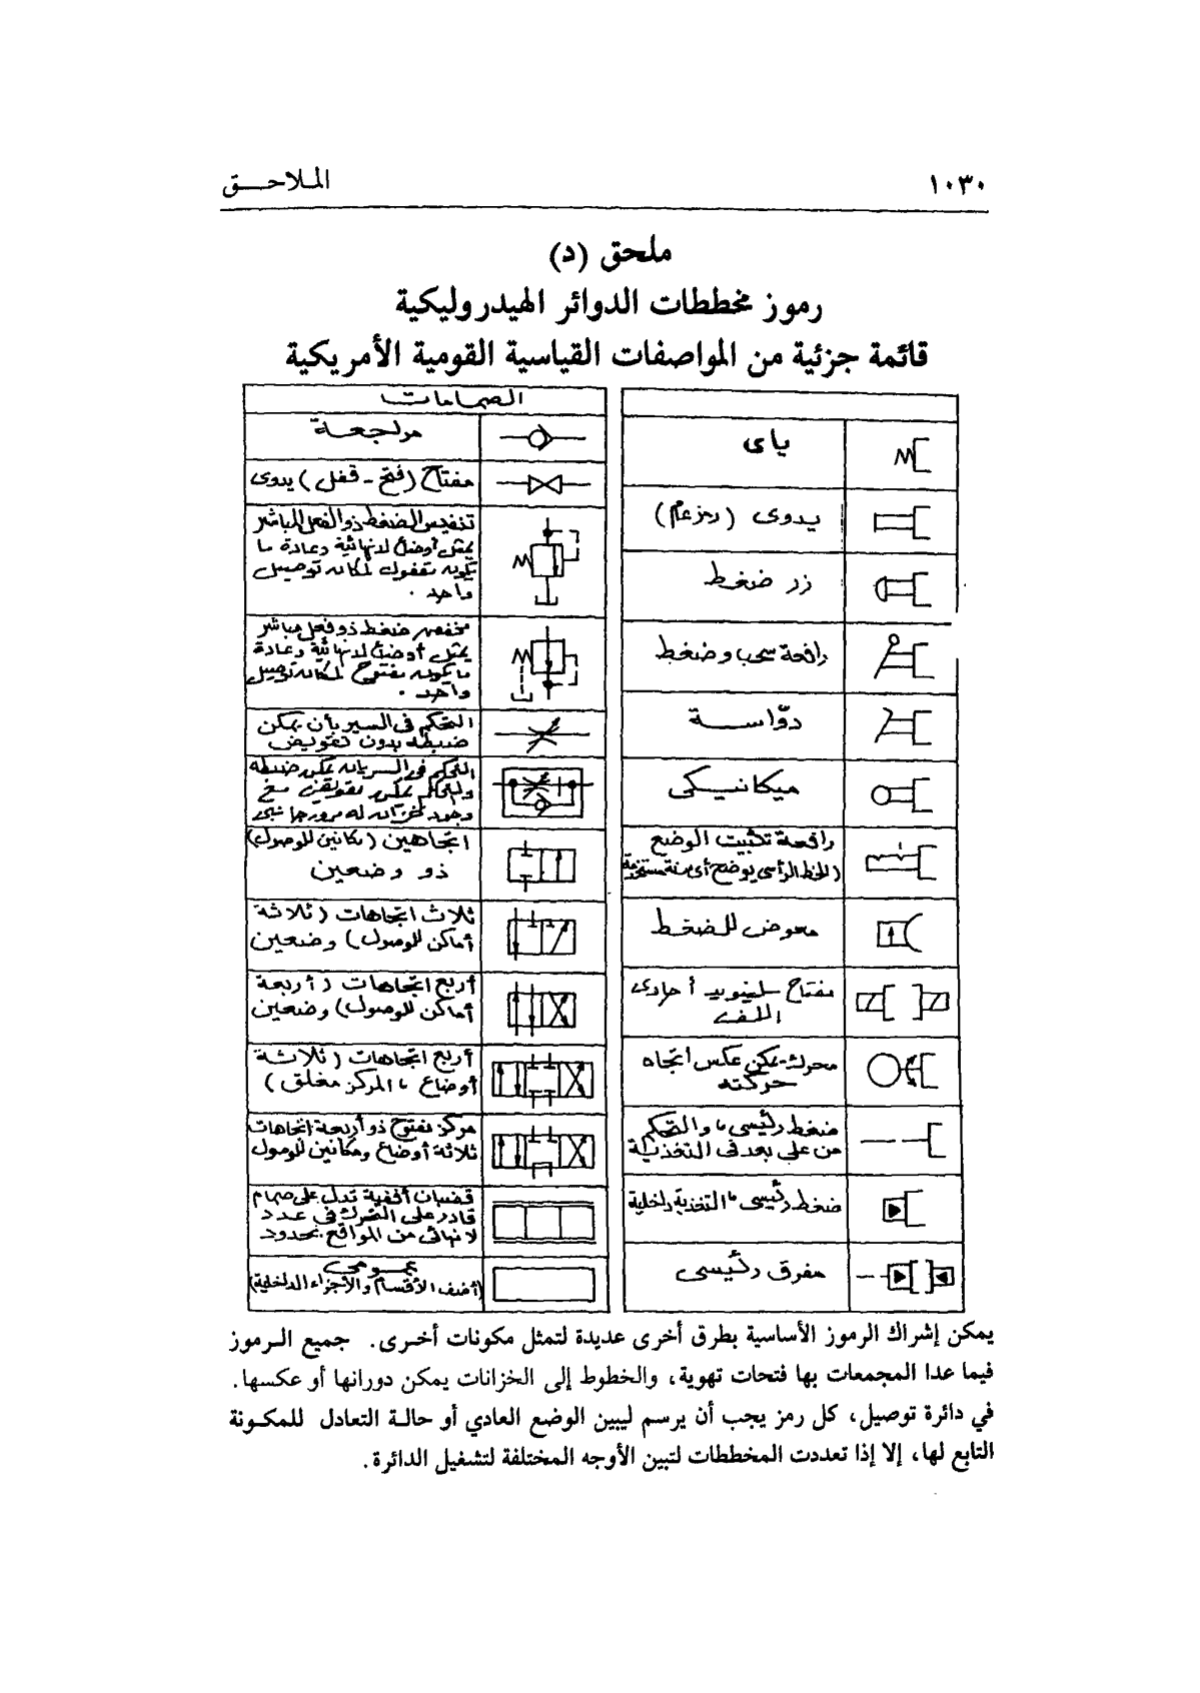 ١٠٣٠
الملاحـــق
ملحق (د)
رموز مخططات الدوائر الهيدروليكية
قائمة جزئية من المواصفات القياسية القومية الأمريكية
ياى
يدوى (رمز عام)
زر ضغط
رافعة سحب وضغط
دوّاسة
ميكانيكى
رافعة تثبيت الوضع
(الخط الرأسى يوضح أى
معوض للضغط
مفتاح سلينويد أحادى
اللف
محرك يمكن عكس اتجاه
حركته
ضغط رئيسى، والتحكم
من على بعد فى التغذية
ضغط رئيسى، التغذية داخلية
مفرق رئيسى
الصمامات
مراجعة
مفتاح (فتح - قفل) يدوى
تنفيس الضغط ذو الفعل المباشر
يمثل أوضاع لانهائية وعادة ما
يكون مقفول لمكان توصيل
واحد .
مخفض ضغط ذو فعل مباشر
يمثل أوضاع لانهائية وعادة
ما يكون مفتوح لمكان توصيل
واحد .
التحكم فى السير بأن يمكن
ضبطه بدون تعويض
التحكم فى السريان يمكن ضبطه
اتجاهين (مكانين للوصول)
ذو وضعين
ثلاث اتجاهات (ثلاثة
أماكن للوصول) وضعين
أربع اتجاهات (أربعة
أماكن للوصول) وضعين
أربع اتجاهات (ثلاثة
أوضاع ، المركز مغلق)
مركز مفتوح ذو أربعة اتجاهات
ثلاثة أوضاع ومكانين للوصول
قضبان أفقية تدل على صمام
قادر على التحرك فى عدد
لا نهائى من المواقع بحدود
عمومى
(أضف الأقسام والأجزاء الداخلية)
يمكن إشراك الرموز الأساسية بطرق أخرى عديدة لتمثل مكونات أخرى. جميع الرموز
فيما عدا المجمعات بها فتحات تهوية، والخطوط إلى الخزانات يمكن دورانها أو عكسها.
في دائرة توصيل، كل رمز يجب أن يرسم ليبين الوضع العادي أو حالة التعادل للمكونة
التابع لها، إلا إذا تعددت المخططات لتبين الأوجه المختلفة لتشغيل الدائرة.